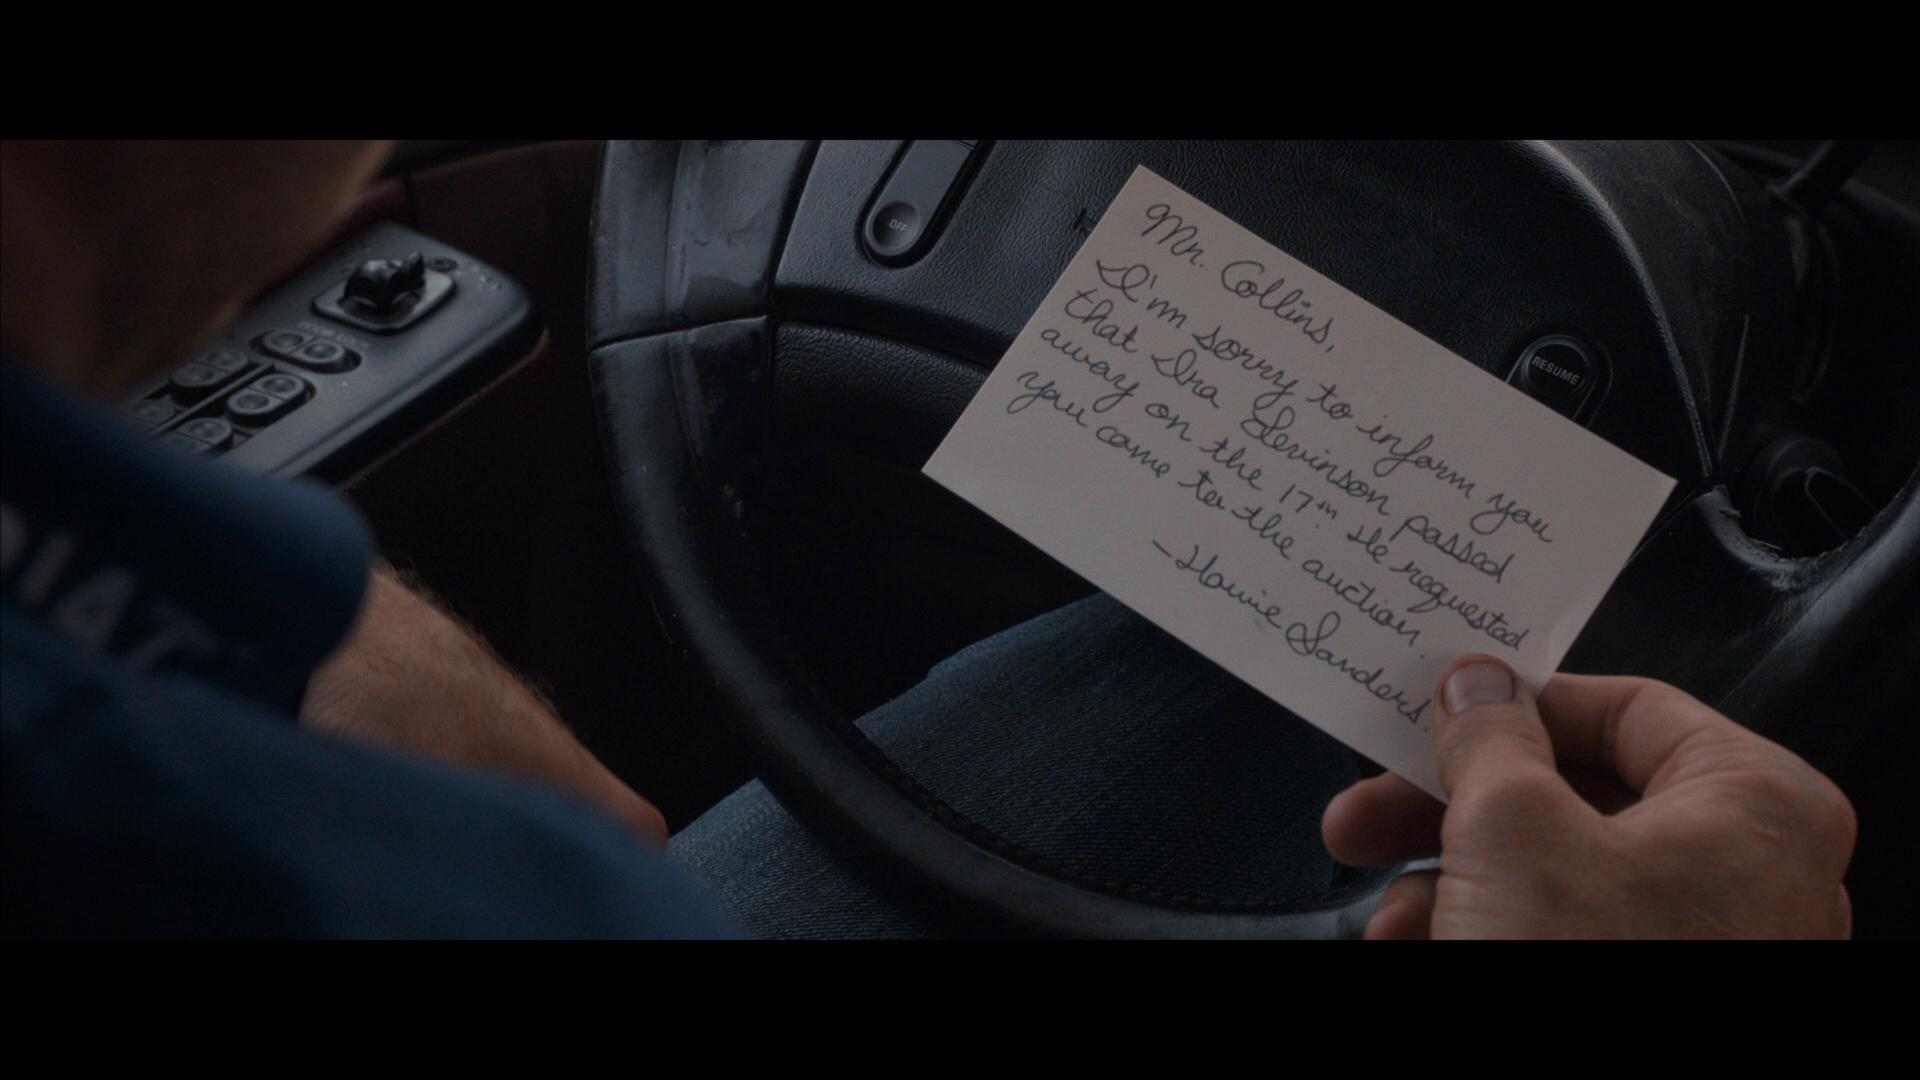 Mr. Collins,
I'm sorry to inform you
that Ira Levinson passed
away on the 17th. He requested
you come to the auction.
-Howie Sanders
OFF
RESUME